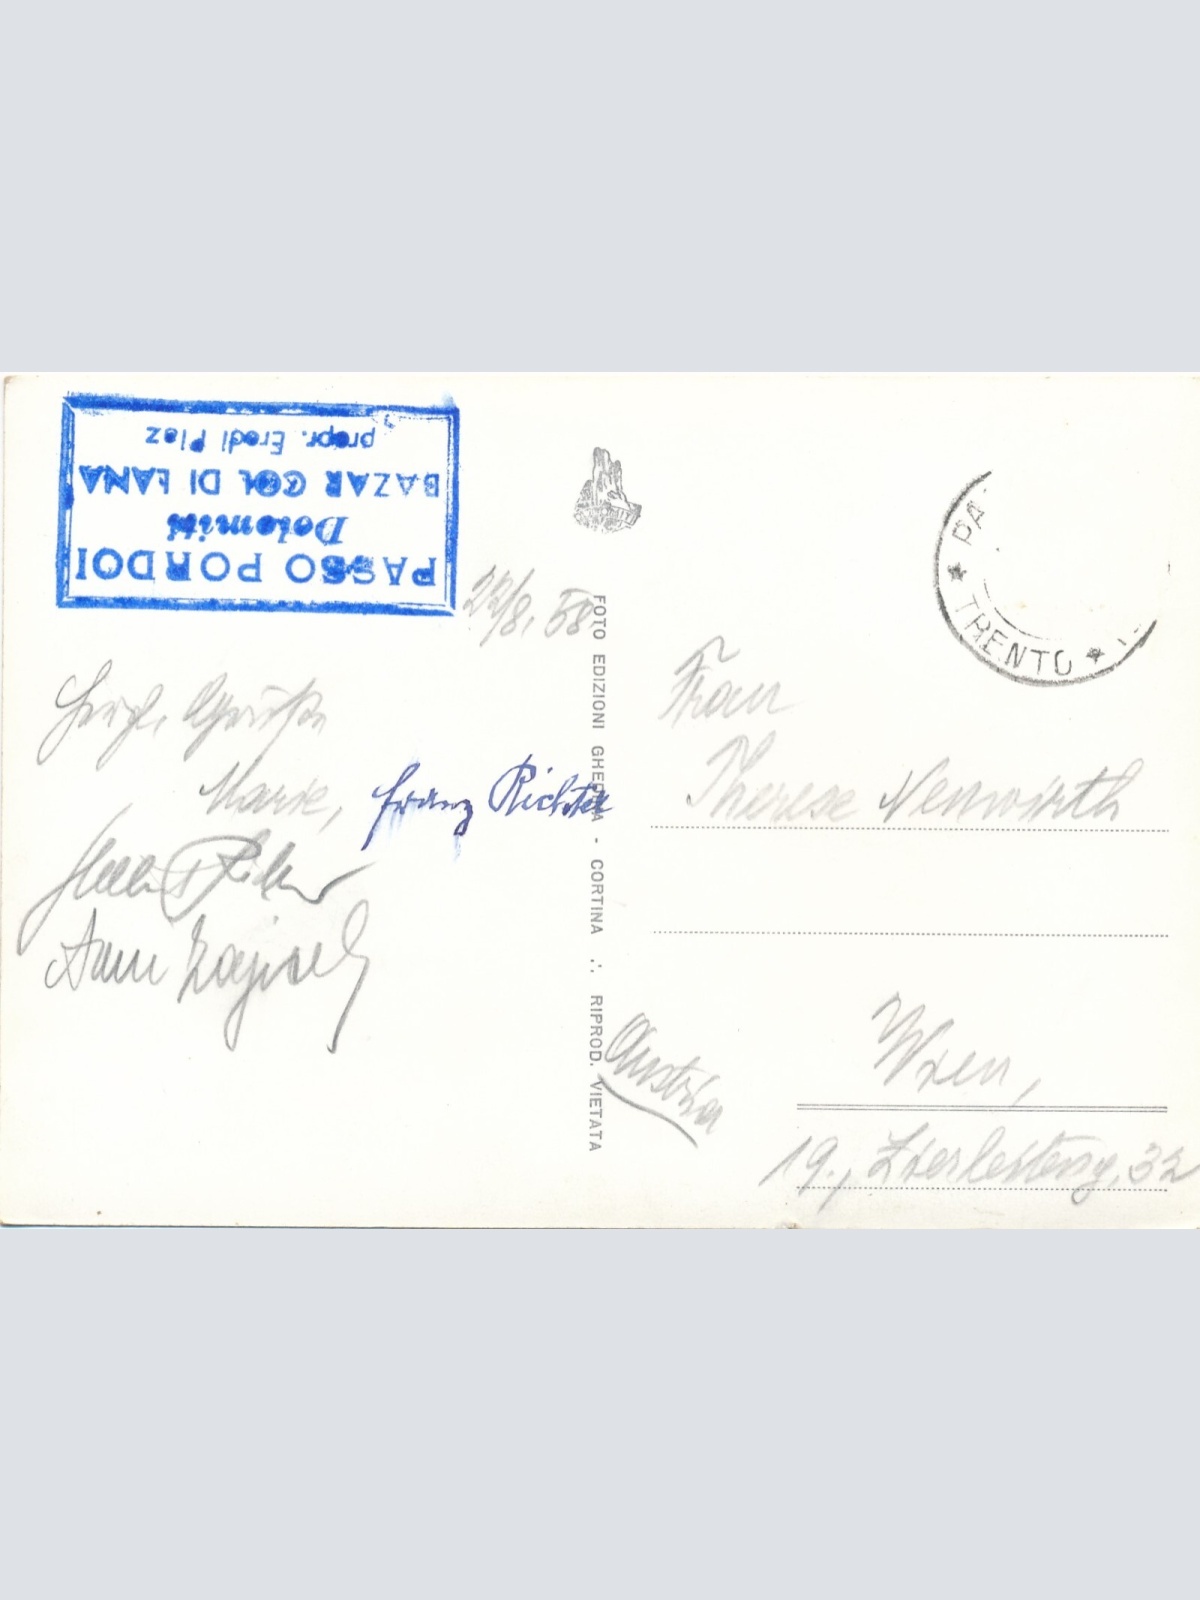 PASSO PORDOI
Dolomiti
BAZAR COL DI LANA
propr. Eredi Plaz
22/8. 58.
Herzl. Grüße
Marie, Franz Richter
Anni
FOTO EDIZIONI GHEDINA - CORTINA ∴ RIPROD. VIETATA
PA
* TRENTO *
Frau
Therese Neuwirth
Wien,
Austria
19., Zierleiteng. 32